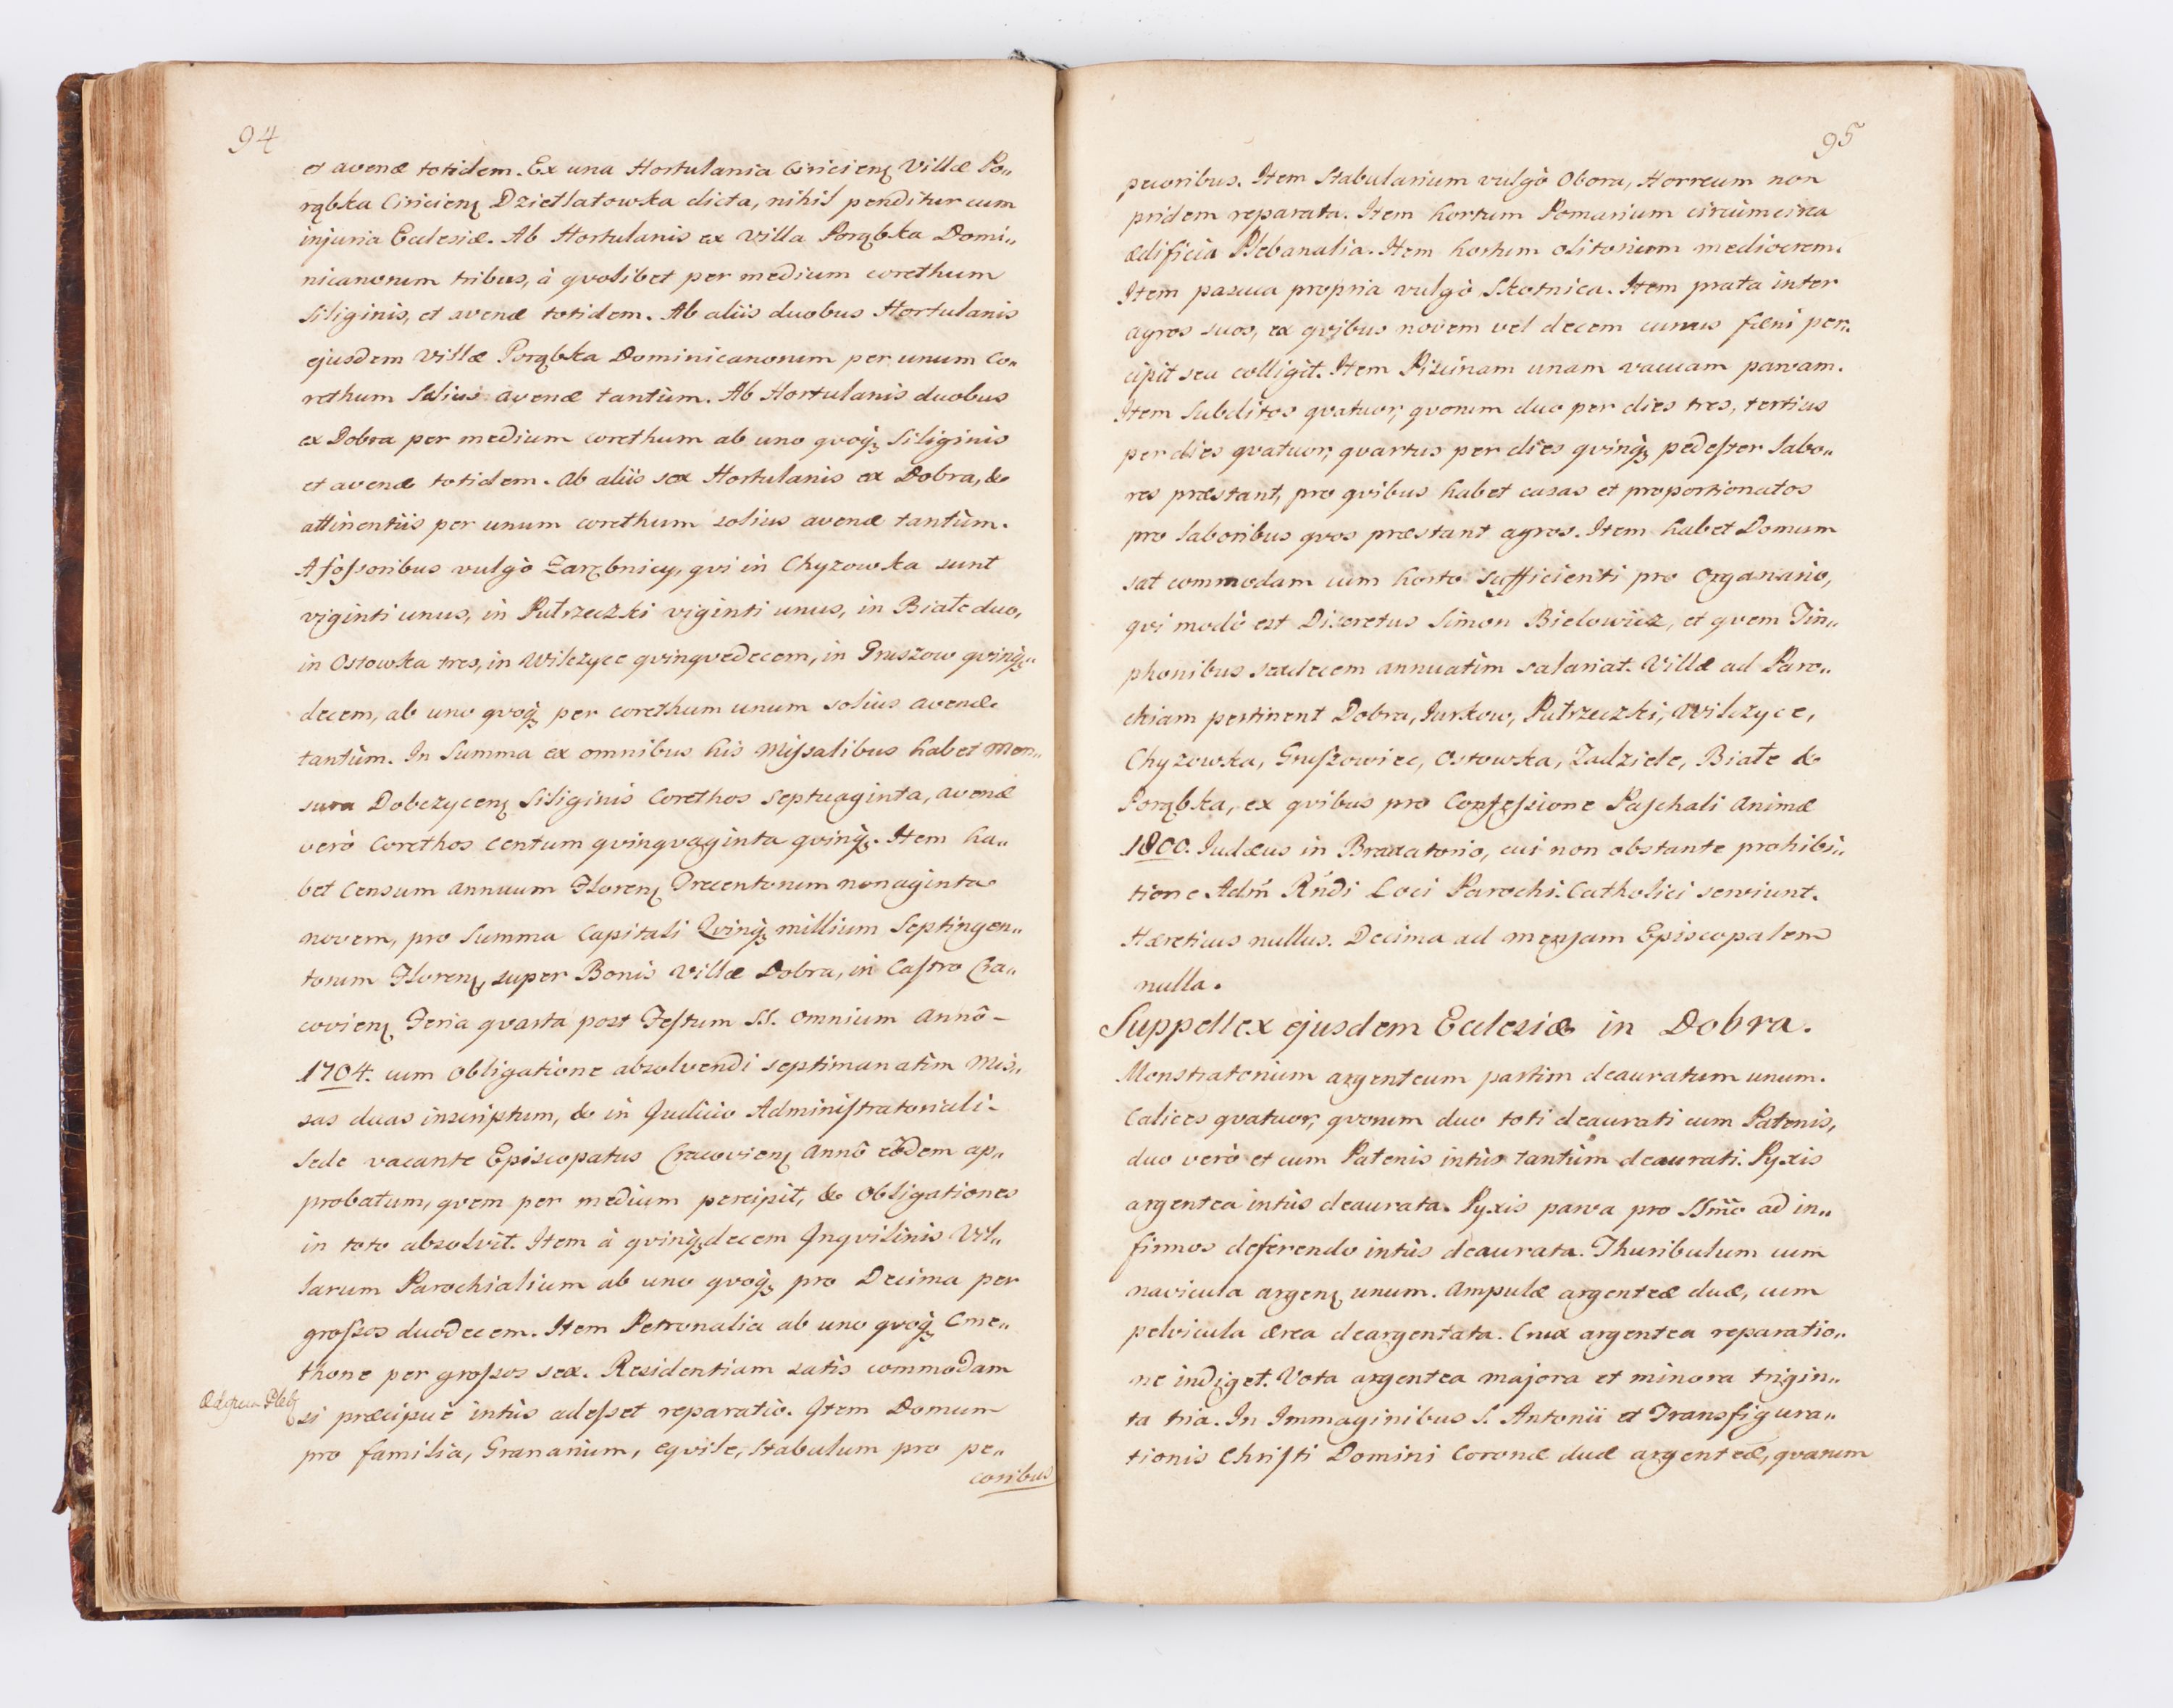 94
et avenæ totidem. Ex una Hortulania Ciricienʒ Villæ Po„
rąbka Ciricienʒ Dzietlatowska dicta, nihil penditur cum
injuria Ecclesiæ. Ab Hortulanis ex Villa Porąbka Domi„
nicanorum tribus, à qvolibet per medium corethum
Siliginis, et avenæ totidem. Ab aliis duobus Hortulanis
ejusdem Villæ Porąbka Dominicanorum per unum Co„
rethum Solius avenæ tantùm. Ab Hortulanis duobus
ex Dobra per medium corethum ab uno qvoq̀ʒ Siliginis
et avenæ totidem. Ab aliis sex Hortulanis ex Dobra, &
attinentiis per unum corethum solius avenæ tantùm.
A fossoribus vulgò Zarębnicy, qvi in Chyzowka sunt
viginti unus, in Putrzeczki viginti unus, in Białe duo,
in Ostowka tres, in Wilczyce qvinqvedecem, in Gruszow qvinq̀ʒ„
decem, ab uno qvoq̀ʒ per corethum unum solius avenæ
tantùm. In Summa ex omnibus his Missalibus habet Men„
sura Dobczycenʒ Siliginis Corethos Septuaginta, avenæ
verò Corethos centum qvinqvaginta qvinq̀ʒ. Item ha„
bet Censum annuum Florenʒ Trecentorum nonaginta
novem, pro Summa Capitali Qvinq̀ʒ millium Septingen„
torum Florenʒ, super Bonis Villæ Dobra, in Castro Cra„
covienʒ Feria qvarta post Festum SS. Omnium Annô –
1704. cum obligatione absolvendi septimanatim Mis„
sas duas inscriptum, & in Judicio Administratoriali –
Sede vacante Episcopatus Cracovienʒ Annô eôdem ap„
probatum, qvem per medium percipit, & obligationes
in toto absolvit. Item à qvinq̀ʒdecem Inqvilinis Vil„
larum Parochialium ab uno qvoq̀ʒ pro Decima per
grossos duodecem. Item Petronalia ab uno qvoq̀ʒ Cme„
thone per grossos sex. Residentiam satis commodam
Ædificia Plebʒ
si præcipuè intùs adesset reparatio. Item Domum
pro familia, Granarium, eqvile, Stabulum pro pe„
coribus
95
pecoribus. Item Stabularium vulgò Obora, Horreum non
pridem reparata. Item hortum Pomarium circùmcirca
ædificia Plebanalia. Item hortum olitorium mediocrem.
Item pascua propria vulgò Skotnica. Item prata inter
agros suos, ex qvibus novem vel decem currus fæni per„
cipit seu colligit. Item Piscinam unam vacuam parvam.
Item Subditos qvatuor, qvorum duo per dies tres, tertius
per dies qvatuor, qvartus per dies qvinq̀ʒ pedester labo„
res præstant, pro qvibus habet casas et proportionatos
pro laboribus qvos præstant agros. Item habet Domum
sat commodam cum horto sufficienti pro Organario,
qvi modò est Discretus Simon Bielowicz, et qvem Tin„
phonibus sexdecem annuatìm salariat. Villæ ad Paro„
chiam pertinent Dobra, Jurkow, Putrzeczki, Wilczyce,
Chyzowka, Gruszowiec, Ostowka, Zadziele, Białe &
Porąbka, ex qvibus pro Confessione Paschali Animæ
1800. Judæus in Braxatorio, cui non obstante prohibi„
tione Adm̃ Rndi Loci Parochi. Catholici serviunt.
Hæreticus nullus. Decima ad mensam Episcopalem
nulla.
Suppellex ejusdem Ecclesiæ in Dobra.
Monstratorium argenteum partim deauratum unum.
Calices qvatuor, qvorum duo toti deaurati cum Patenis,
duo verò et cum Patenis intùs tantùm deaurati. Pyxis
argentea intùs deaurata. Pyxis parva pro SSm̃o ad in„
firmos deferendo intùs deaurata. Thuribulum cum
navicula argenʒ unum. Ampulæ argenteæ duæ, cum
pelvicula ærea deargentata. Crux argentea reparatio„
ne indiget. Vota argentea majora et minora trigin„
ta tria. In Immaginibus S. Antonii et Transfigura„
tionis Christi Domini Coronæ duæ argenteæ, qvarum